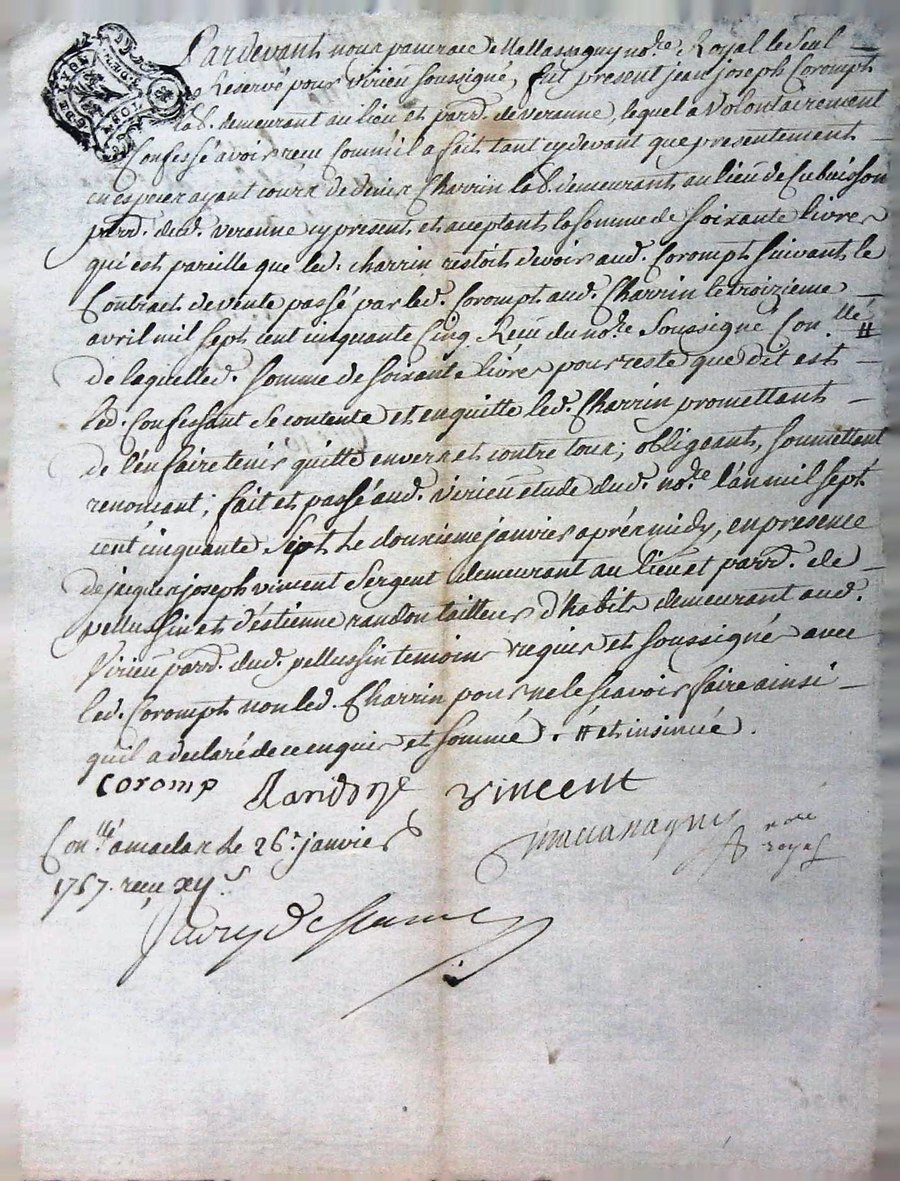 Pardevant nous pancrace Mallassagny no.re Royal le Seul
Reservé pour Virieu soussigné, fut present jean joseph Corompt
lab. demeurant au lieu et parr. de veranne, lequel a volontairement
Confessé avoir recu Comm'il a fait tant cy devant que presentement
en especes ayant cours de denis Charrin lab. demeurant au lieu de Cubuisson
parr. dud. veranne cy present et aceptant la somme de soixante livres
qui est pareille que led. charrin restoit devoir aud. Corompt suivant le
Contract de vente passé par led. Corompt aud. Charrin le troizieme
avril mil sept cent cinquante cinq Receu du no.re soussigné Con.llé #
de laquelled. somme de soixante livres pour reste que dit est
led. Confessant se contente et en quitte led. Charrin promettant
de l'en faire tenir quitte envers et contre tous; obligeant, soumettent
renoncant; fait et passé aud. Virieu etude dud. no.re l'an mil sept
cent cinquante sept le douzieme janvier aprés midy, en presence
de jacques joseph vincent sergent demeurant au lieu et parr. de
pellussin et d'estienne randon tailleur d'habits demeurant aud.
Virieu parr. dud. pellussin temoins requis et soussignés avec
led. Corompt non led. Charrin pour ne le scavoir faire ainsi
qu'il a declaré de ce enquis et sommé. # et insinué.
coromp Randon vincent
no.re
royal
Con.llé a maclas le 26.e janvier
1757. reçu xii s